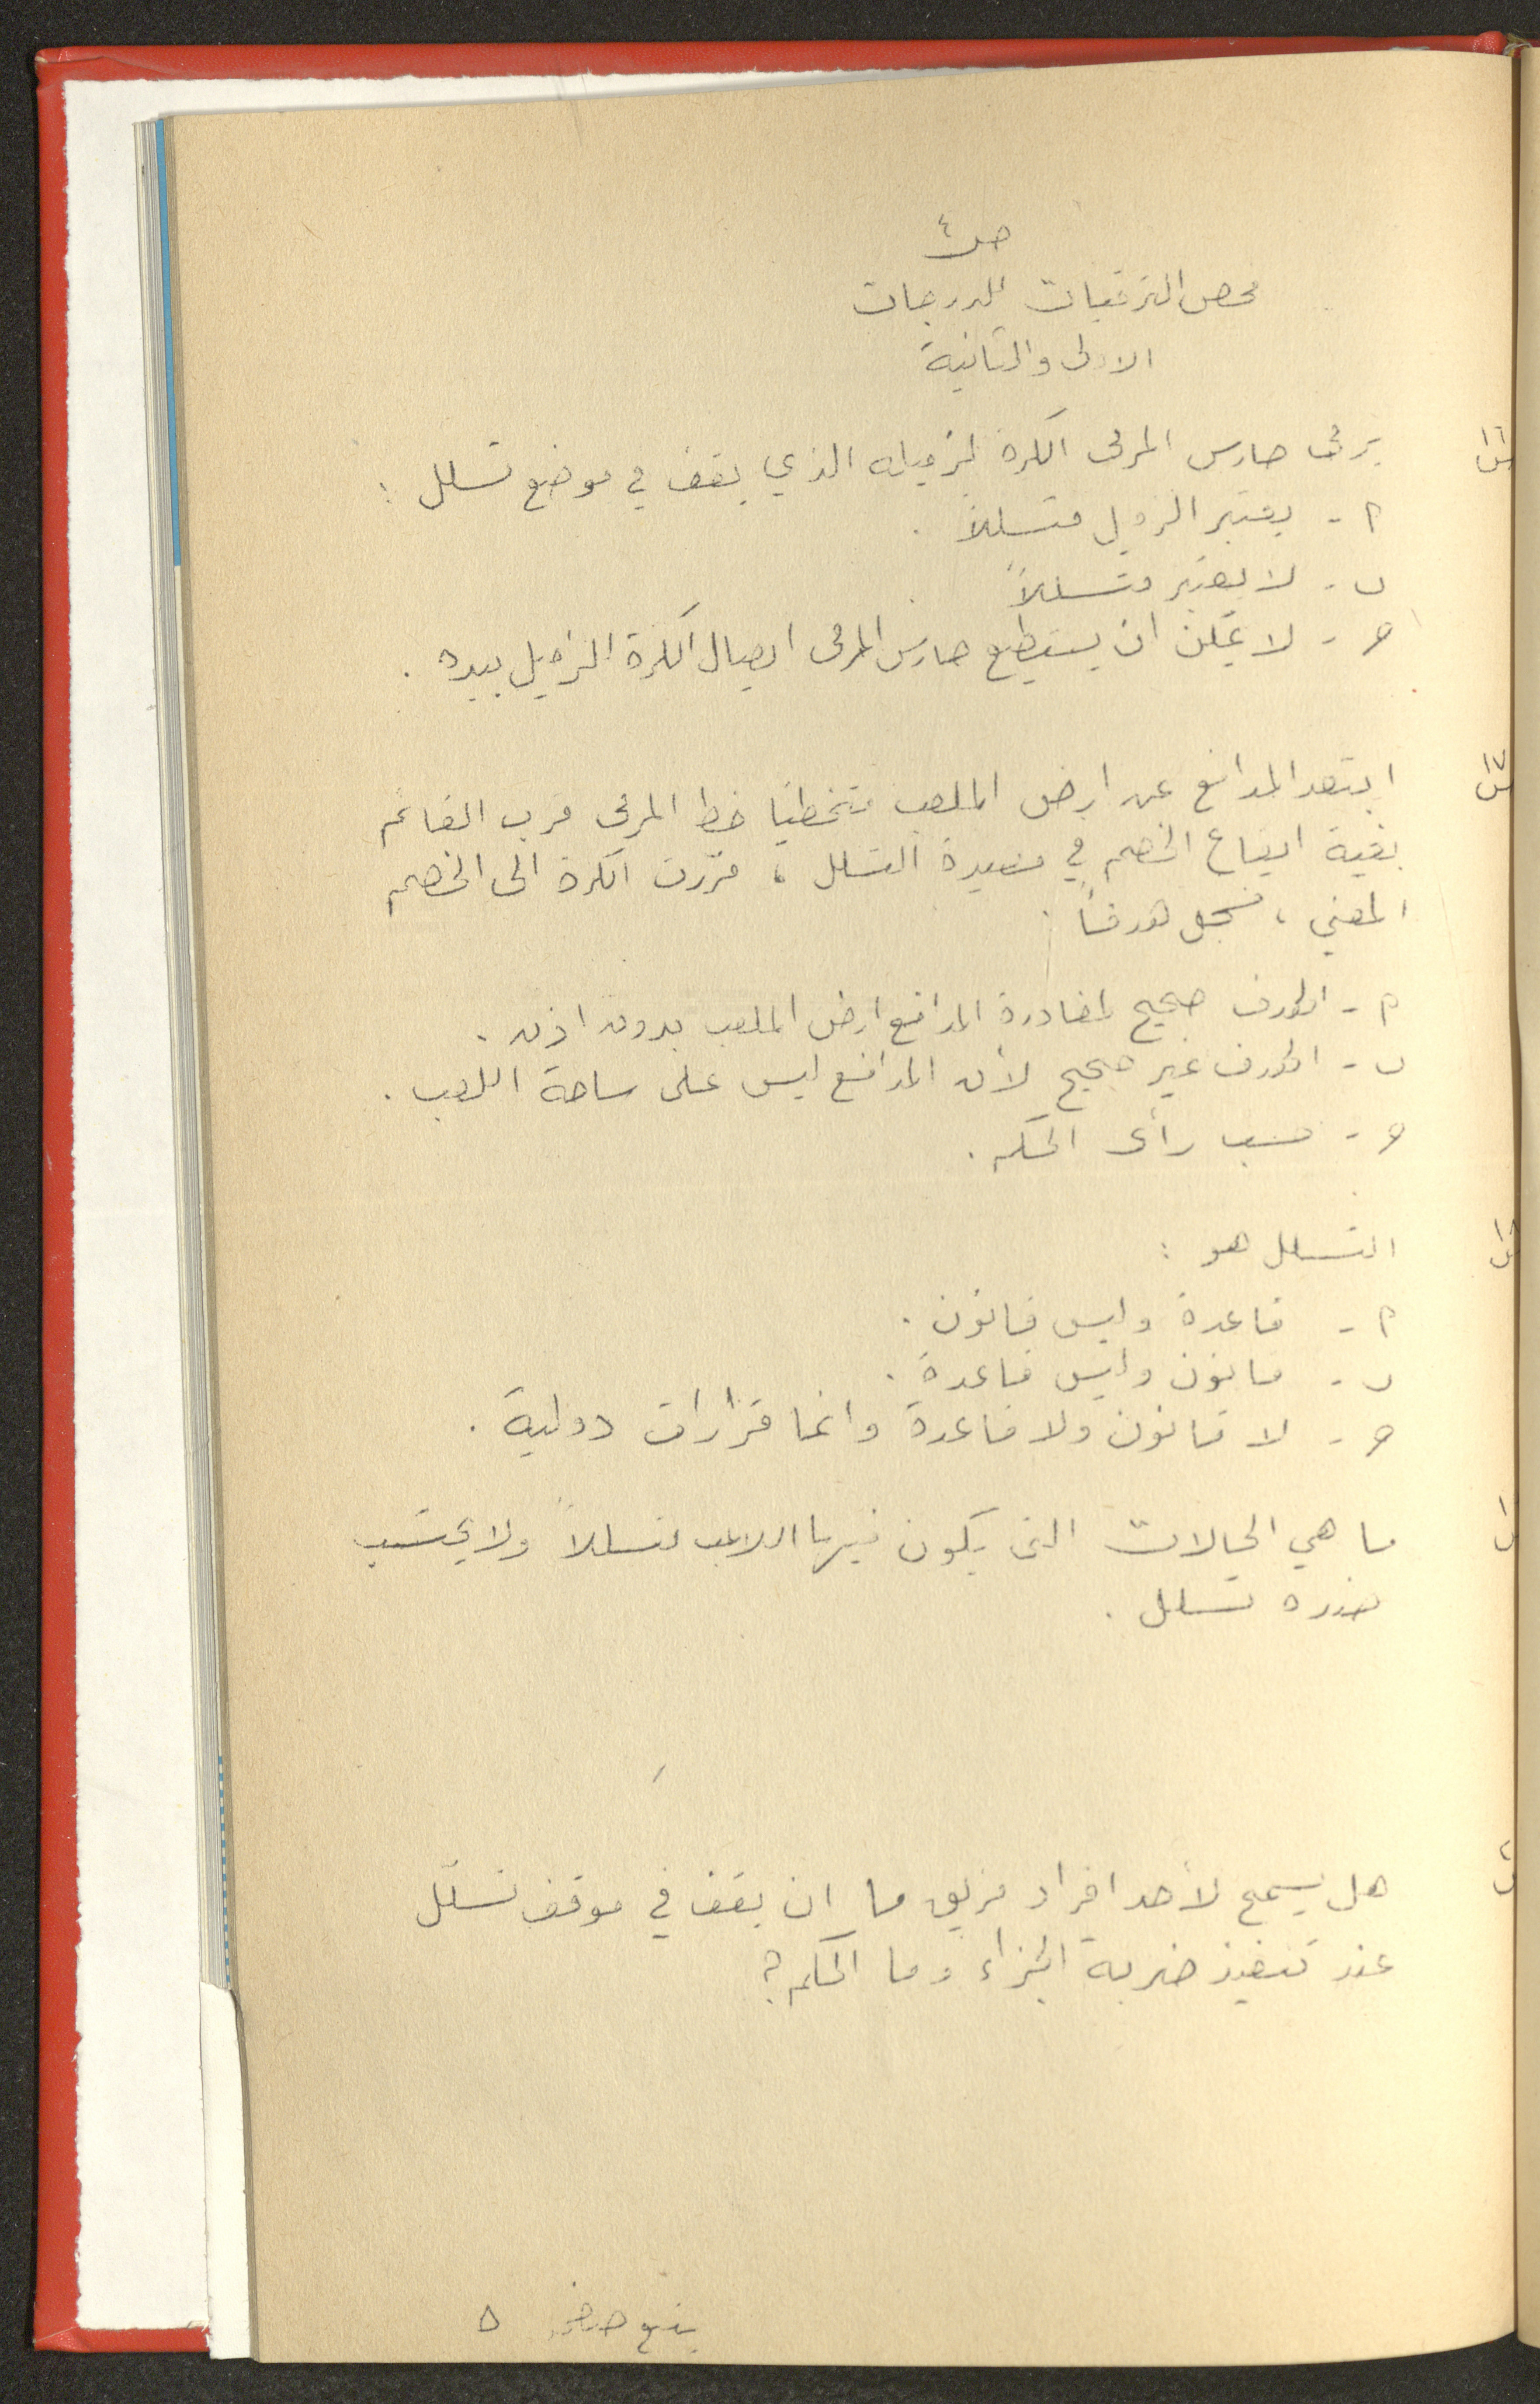 ص ٤
فحص الترقيات للدرجات
الاولى والثانية
س١٦ يرمى حارس المرمى الكرة لزميله الذي يقف في موضع تسلل :
م - يعتبر الزميل متسللاً .
ب - لا يعتبر متسللاً
ج - لا يمكن ان يستطيع حارس المرمى ايصال الكرة للزميل بيده .
س١٧ ابتعد المدافع عن ارض الملعب متخطيا خط المرمى قرب القائم
بغية ايقاع الخصم في مصيدة التسلل ، مررت الكرة الى الخصم
المعني ، فسجل هدفاً :
م - الهدف صحيح لمغادرة المدافع ارض الملعب بدون اذن .
ب - الهدف غير صحيح لأن المدافع ليس على ساحة اللعب .
ج - حسب رأى الحكم .
س١٨ التسلل هو :
م - قاعدة وليس قانون .
ب - قانون وليس قاعدة .
ج - لا قانون ولا قاعدة وانما قرارات دولية .
ما هي الحالات التى يكون فيها اللاعب متسللاً ولا يحتسب
ضده تسلل .
هل يسمح لأحد افراد فريق ما ان يقف في موقف تسلل
عند تنفيذ ضربة الجزاء وما الحكم ؟
يتبع صفحة ٥